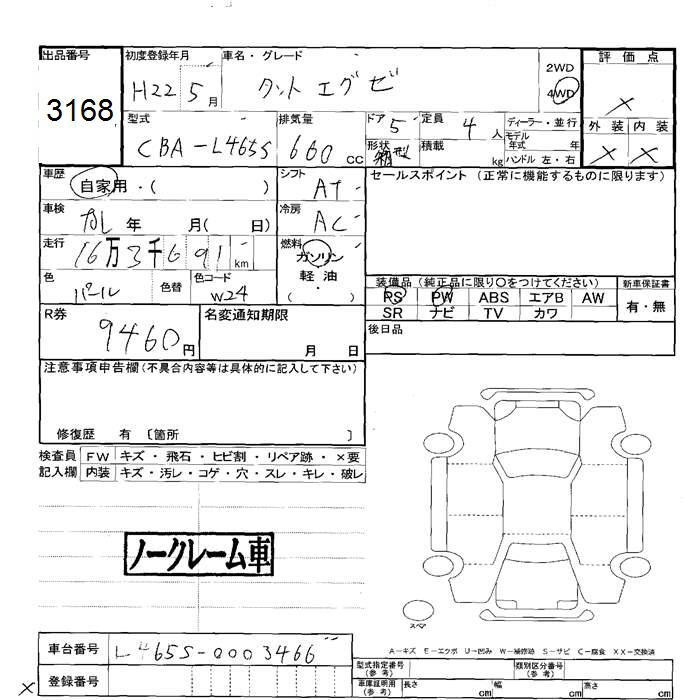 出品番号
3168
初度登録年月
H22 5月
車名・グレード
タント エグゼ
2WD
4WD
評価点
×
外装 内装
× ×
型式
CBA-L465S
排気量
660 CC
ドア 5
形状 箱型
定員 4 人
積載 kg
ディーラー・並行
モデル年式 年
ハンドル 左・右
車歴
自家用・( )
シフト AT
セールスポイント (正常に機能するものに限ります)
車検
なし 年 月( 日)
冷房 AC
走行
16万3千691km
燃料
ガソリン
軽・油
( )
色 パール
色替
色コード W24
装備品 (純正品に限り○をつけてください)
新車保証書
PS PW ABS エアB AW
有・無
SR ナビ TV カワ
R券
9460円
名変通知期限
月 日
後日品
注意事項申告欄(不具合内容等は具体的に記入して下さい)
修復歴 有 〔箇所 〕
検査員 FW キズ・飛石・ヒビ割・リペア跡・×要
記入欄 内装 キズ・汚レ・コゲ・穴・スレ・キレ・破レ
ノークレーム車
スペア
A−キズ E−エクボ U−凹み W−補修跡 S−サビ C−腐食 XX−交換済
車台番号 L465S-0003466
登録番号
×
型式指定番号(参考)
類別区分番号(参考)
車庫証明用(参考) 長さ cm 幅 cm 高さ cm